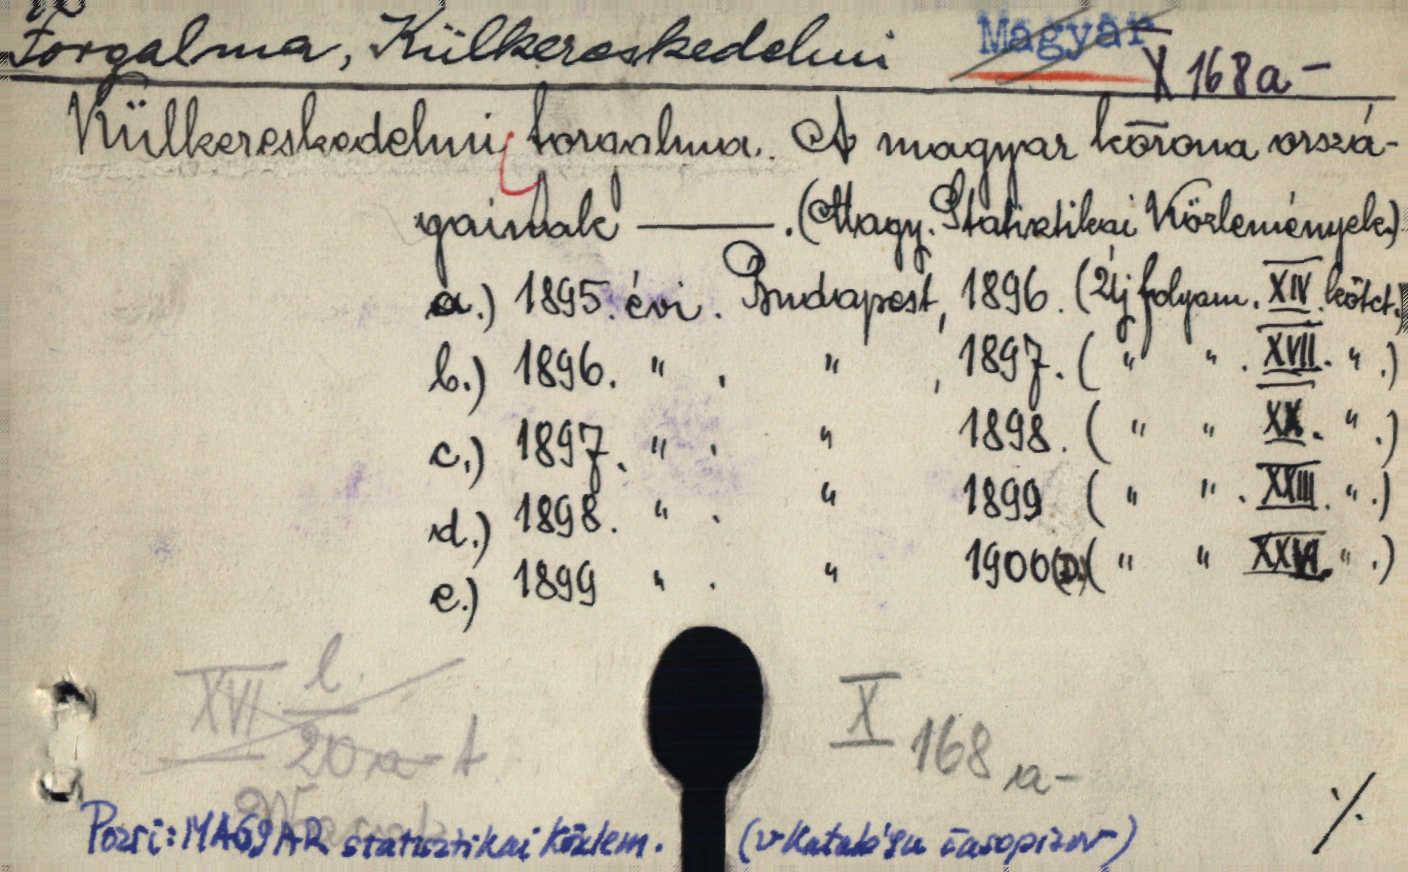 Forgalma, Külkereskedelmi
Magyar
X 168a-
Külkereskedelmi forgalma. A magyar korona orszá-
gainak ——— . (Magy. Statisztikai Közlemények.)
a.) 1895. évi. Budapest, 1896. (Uj folyam. XIV. kötet.)
b.) 1896. " . " , 1897. ( " " . XVII. " .)
c.) 1897. " . " 1898. ( " " XX. " .)
d.) 1898. " . " 1899 ( " " . XXIII. " .)
e.) 1899 " . " 1900 ( " " XXVI. " .)
XVI l.
20 a-t
X 168 a-
Pozri: MAGYAR statisztikai közlem. (v katalógu časopisov)
·/.